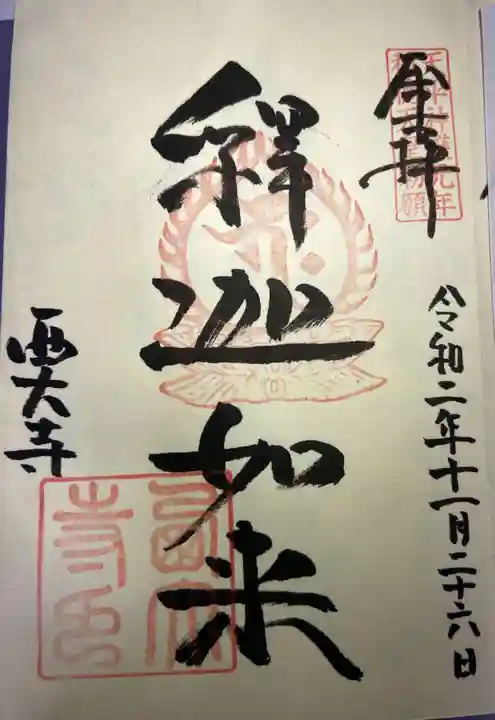 奉拝
令和二年十一月二十六日
釋迦如来
西大寺